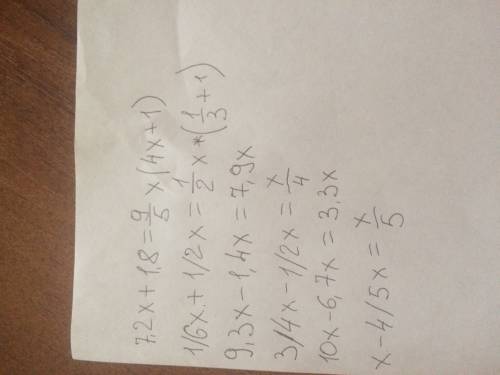 7,2x + 1,8 = 9/5 x (4x + 1)
1/6x + 1/2x = 1/2 x * (1/3 + 1)
9,3x - 1,4x = 7,9x
3/4x - 1/2x = x/4
10x - 6,7x = 3,3x
x - 4/5x = x/5